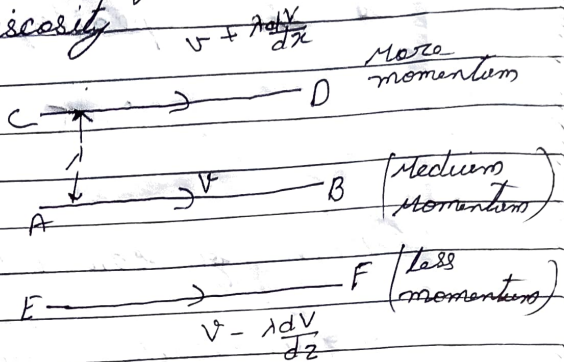 iscosity
v + λdV/dx
C D More momentum
λ
A v B (Medium Momentum)
E F (Less momentum)
v - λdV/dz